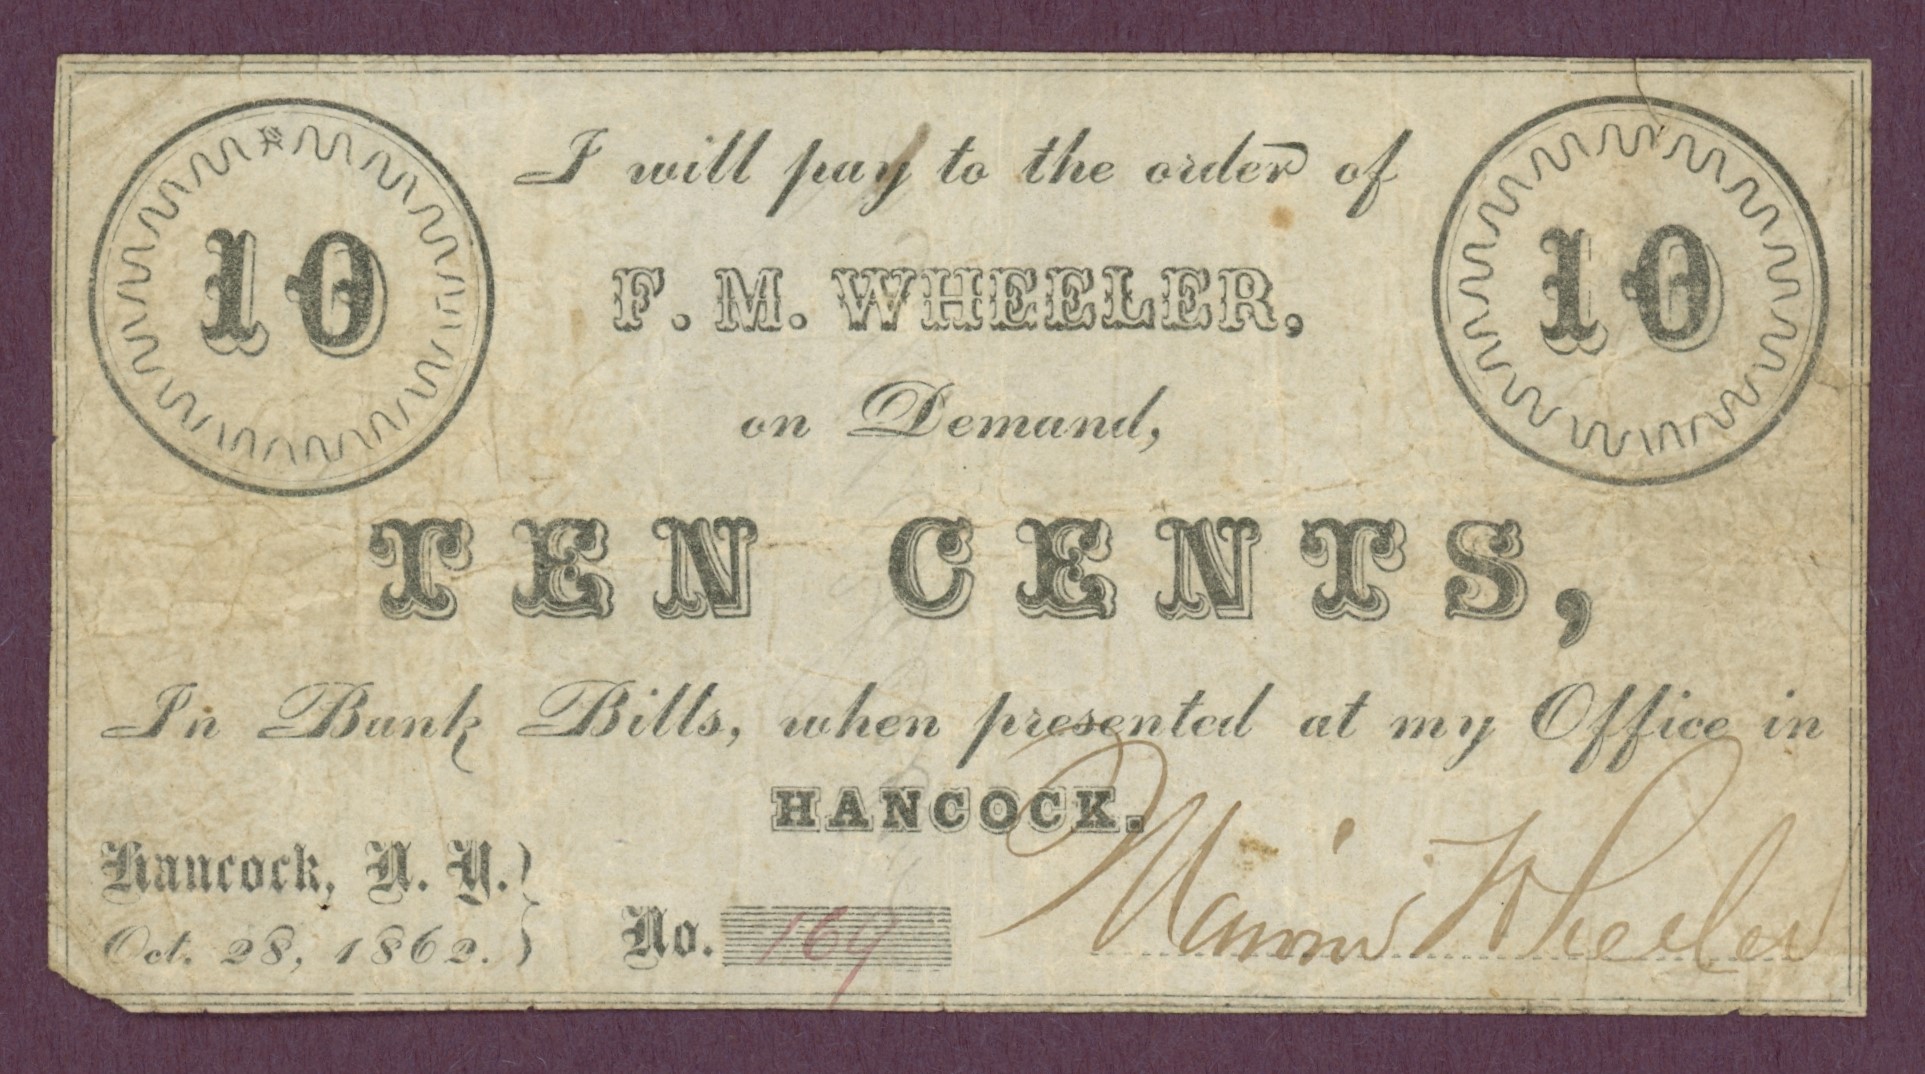 10 I will pay to the order of 10
F. M. WHEELER,
on Demand,
TEN CENTS,
In Bank Bills, when presented at my Office in
HANCOCK.
Hancock, N. Y.
Oct. 28, 1862.
No. 169
Marvin Wheeler